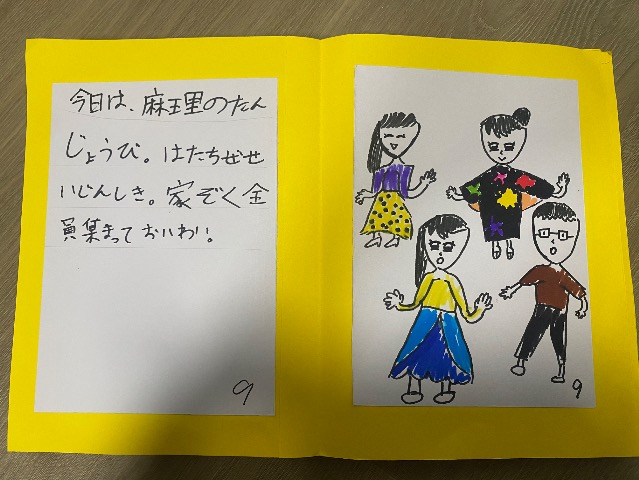 今日は、麻王里のたん
じょうび。はたちぜせ
いじんしき。家ぞく全
員集まっておいわい。
9
9